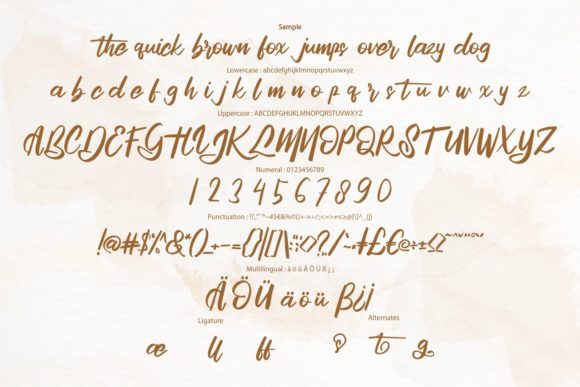 Sample
the quick brown fox jumps over lazy dog
Lowercase : abcdefghijklmnopqrstuvwxyz
a b c d e f g h i j k l m n o p q r s t u v w x y z
Uppercase : ABCDEFGHIJKLMNOPQRSTUVWXYZ
ABCDEFGHIJKLMNOPQRSTUVWXYZ
Numeral : 0123456789
1 2 3 4 5 6 7 8 9 0
Multilingual : ä ö ü Ä Ö Ü ß ¿ ¡
ÄÖÜ äöü ß¿¡
Ligature Alternates
æ ll ff s t g